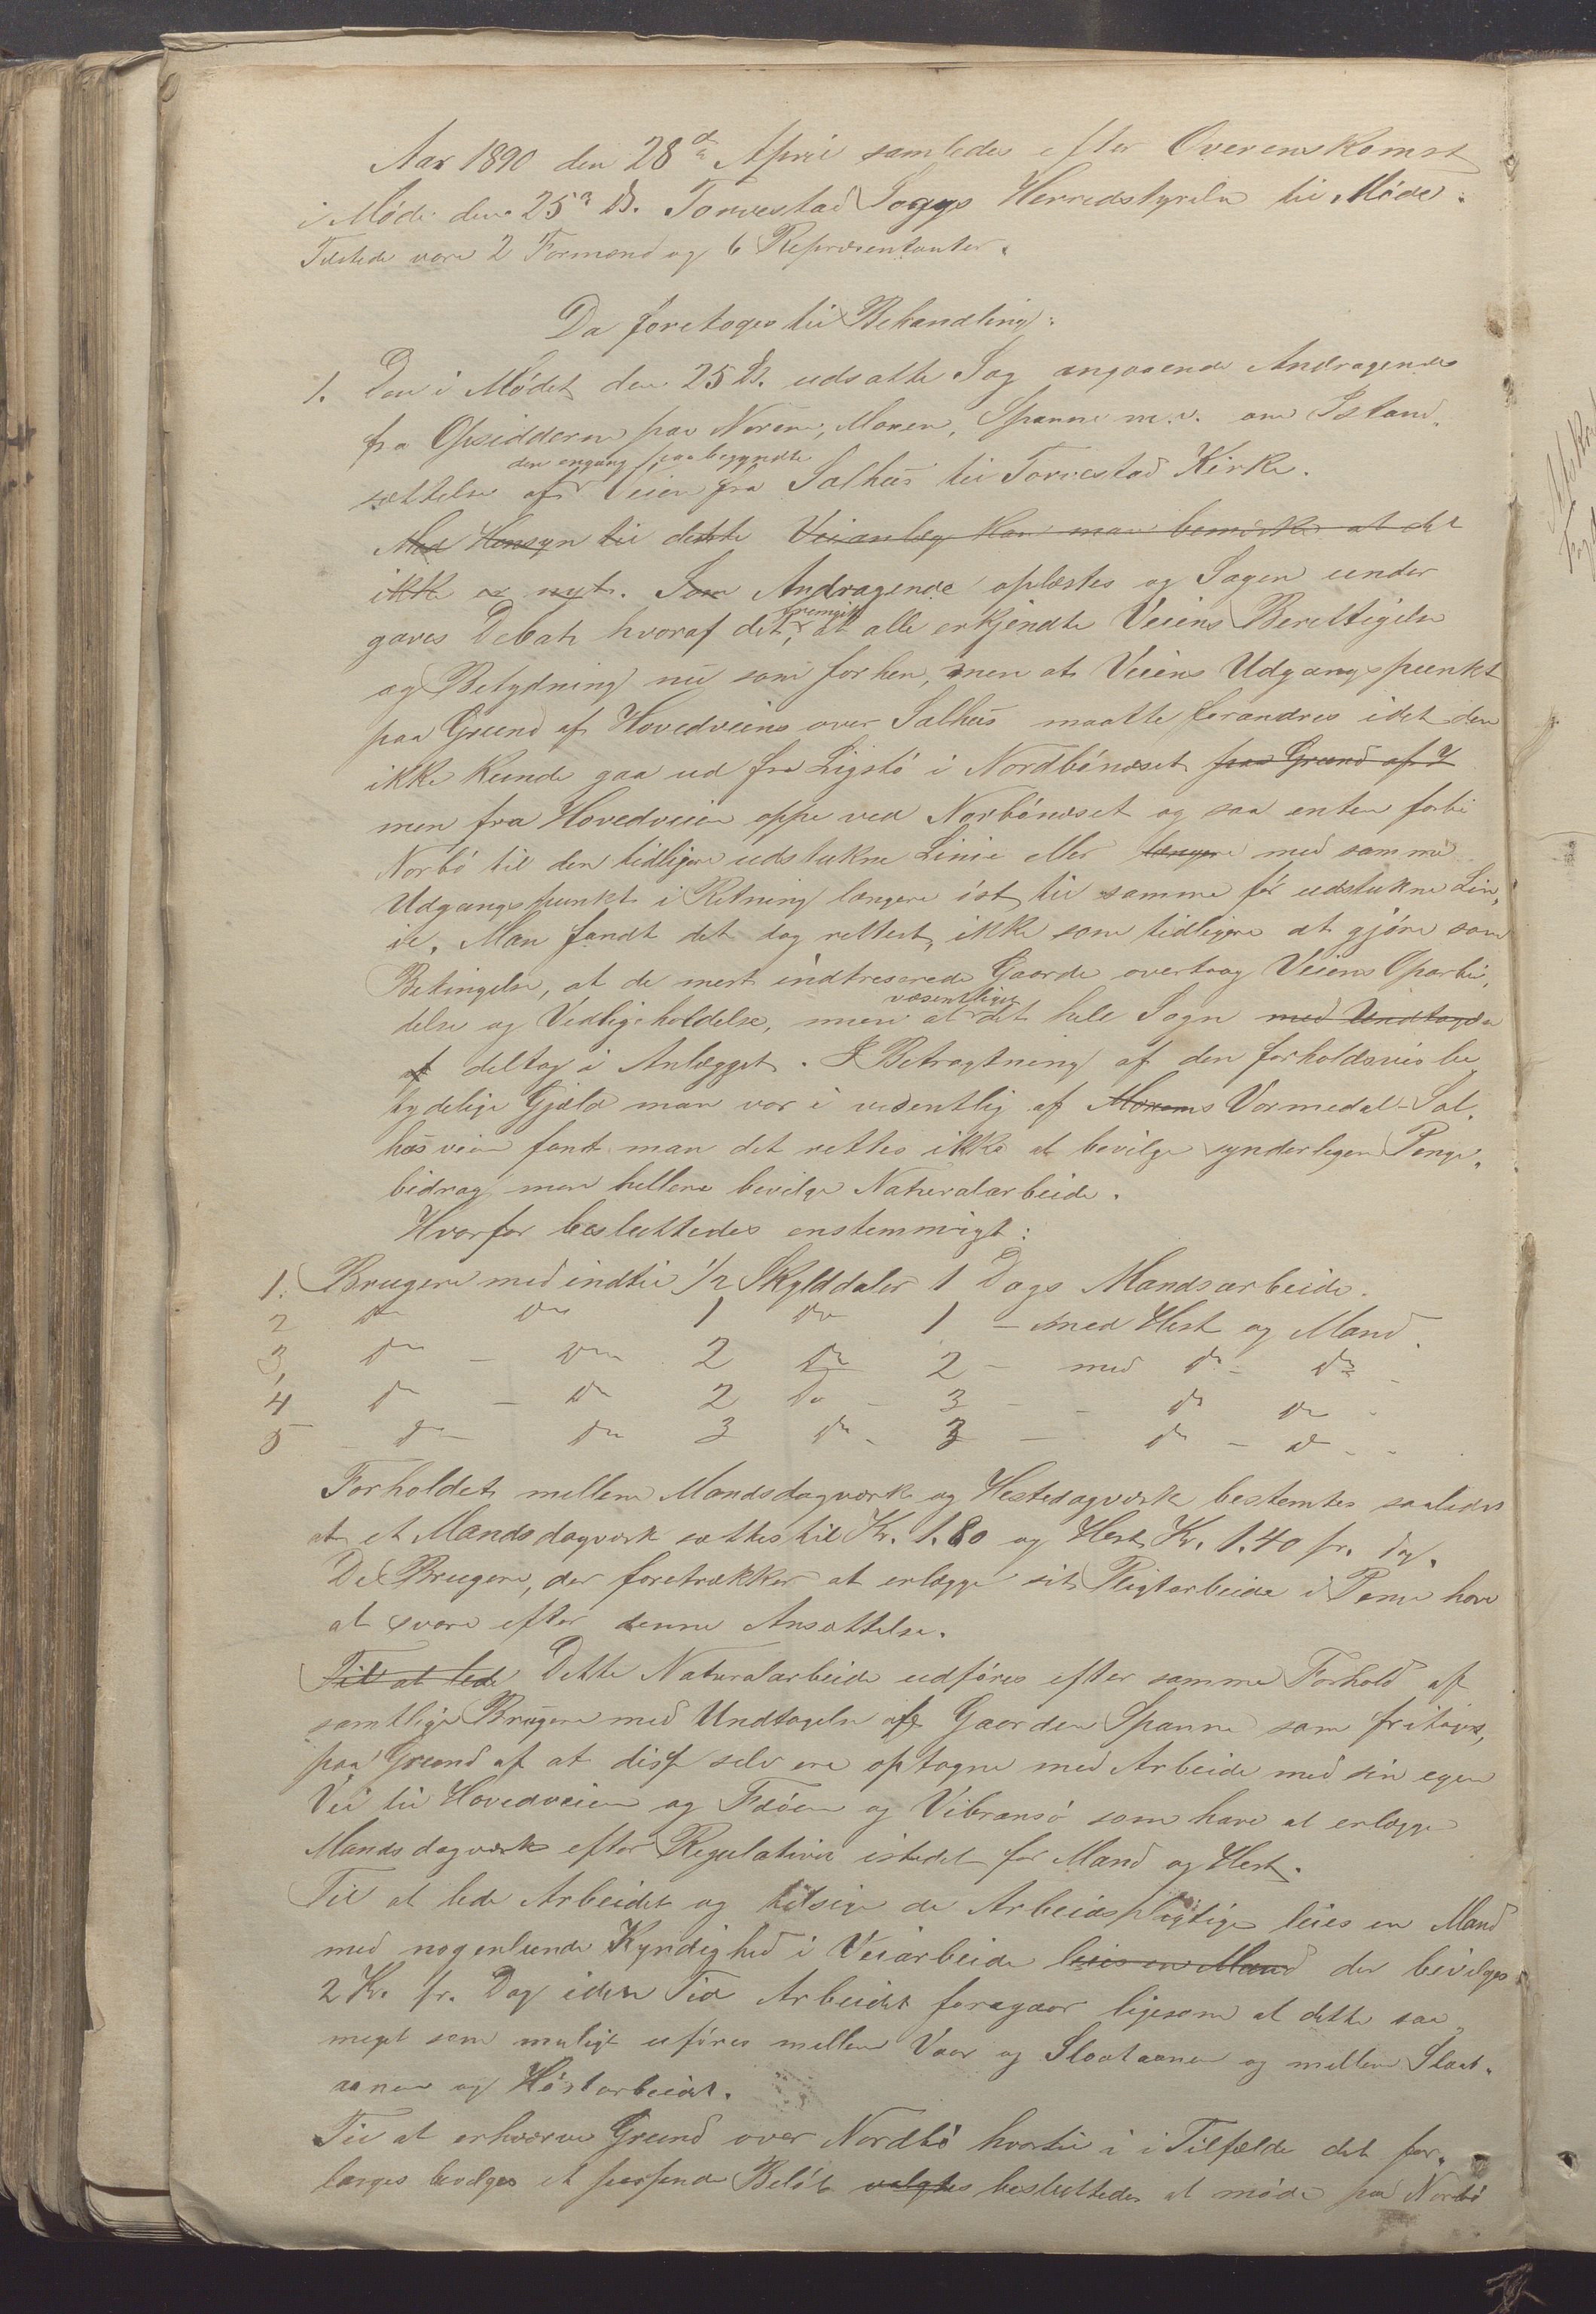 Aar 1890 den 28de April samledes efter Overenskomst
i Møde den 25de ds. Torvestad Sogns Herredstyrelse til Møde.
Tilstede vare 2 Formænd og 6 Repræsentanter.
Da foretoges til Behandling:
1. Den i Mødet den 25 ds. udsatte Sag angaaende Andragende
fra Opsidderne paa Norem, Moxen, Spanne m.v. om Istand-
den engang paabegyndte
sættelse af Veien fra Salhus til Torvestad Kirke.
Med Hensyn til dette Veianlæg kan man bemærke at det
ikke er nyt. Som Andragende oplæstes og Sagen under
fremgik
gaves Debat hvoraf det, at alle erkjendte Veiens Berettigelse
og Betydning nu som forhen, men at Veiens Udgangspunkt
paa Grund af Hovedveiens over Salhus maatte forandres idet den
ikke kunde gaa ud fra Ligstø i Nordbønæset paa Grund af
men fra Hovedveien oppe ved Norbønæset og saa enten forbi
Norbø til den tidligere udstukne Linie eller længere med samme
Udgangspunkt i Retning længere øst til samme før udstukne Lin-
ie. Man fandt det dog rettest, ikke som tidligere at gjøre som
Betingelse, at de mest indtreserede Gaarde overtaog Veiens Oparbei-
væsentligen
delse og Vedligeholdelse, men at det hele Sogn med Undtagelse
af deltog i Anlægget. I Betragtning af den forholdsvis be
tydelige Gjæld man var i væsentlig af Moxens Vormedal-Sal-
husveien fandt man det rettes ikke at bevilge synderlegen Penge-
bidrag men hellere bevilge Naturalarbeide.
Hvorfor besluttedes enstemmigt:
1. Brugere med indtil 1/2 Skylddaler 1 Dags Mandsarbeide.
2 do do 1 do 1 - med Hest og Mand.
3, do - do 2 do 2 - med do - do -
4 do - do 2 do - 3 - - do do -
5 - do - do 3 do - 3 - do - do - -
Forholdet mellem Mandsdagværk og Hestedagværk bestemtes saaledes
at et Mandsdagværk sættes til Kr. 1.80 og Hest Kr. 1.40 pr. Dag.
De Brugere, der foretrækker at erlægge sit Pligtarbeide i Penge have
at svare efter denne Ansættelse.
Til at lede Dette Naturalarbeide udføres efter samme Forhold af
samtlige Brugere med Undtagelse af Gaarden Spanne som fritages,
paa Grund af at disse selv ere optagne med Arbeide med sin egen
Vei til Hovedveien og Fæøen og Vibransø som have at erlægge
Mandsdagværk efter Regulativet istedet for Mand og Hest.
Til at lede Arbeidet og tilsige de Arbeidspligtige leies en Mand
med nogenlunde Kyndighed i Veiarbeide leies en Mand der bevilges
2 Kr. pr. Dag i den Tid Arbeidet foregaar ligesom at dette saa
meget som muligt uføres mellem Vaar og Slaataanen og mellem Slaat-
aanen og Høstarbeidet.
Til at erhverve Grund over Nordbø hvortil i i Tilfælde det for-
langes bevilges et passende Beløb valgtes besluttedes at møde paa Norbø